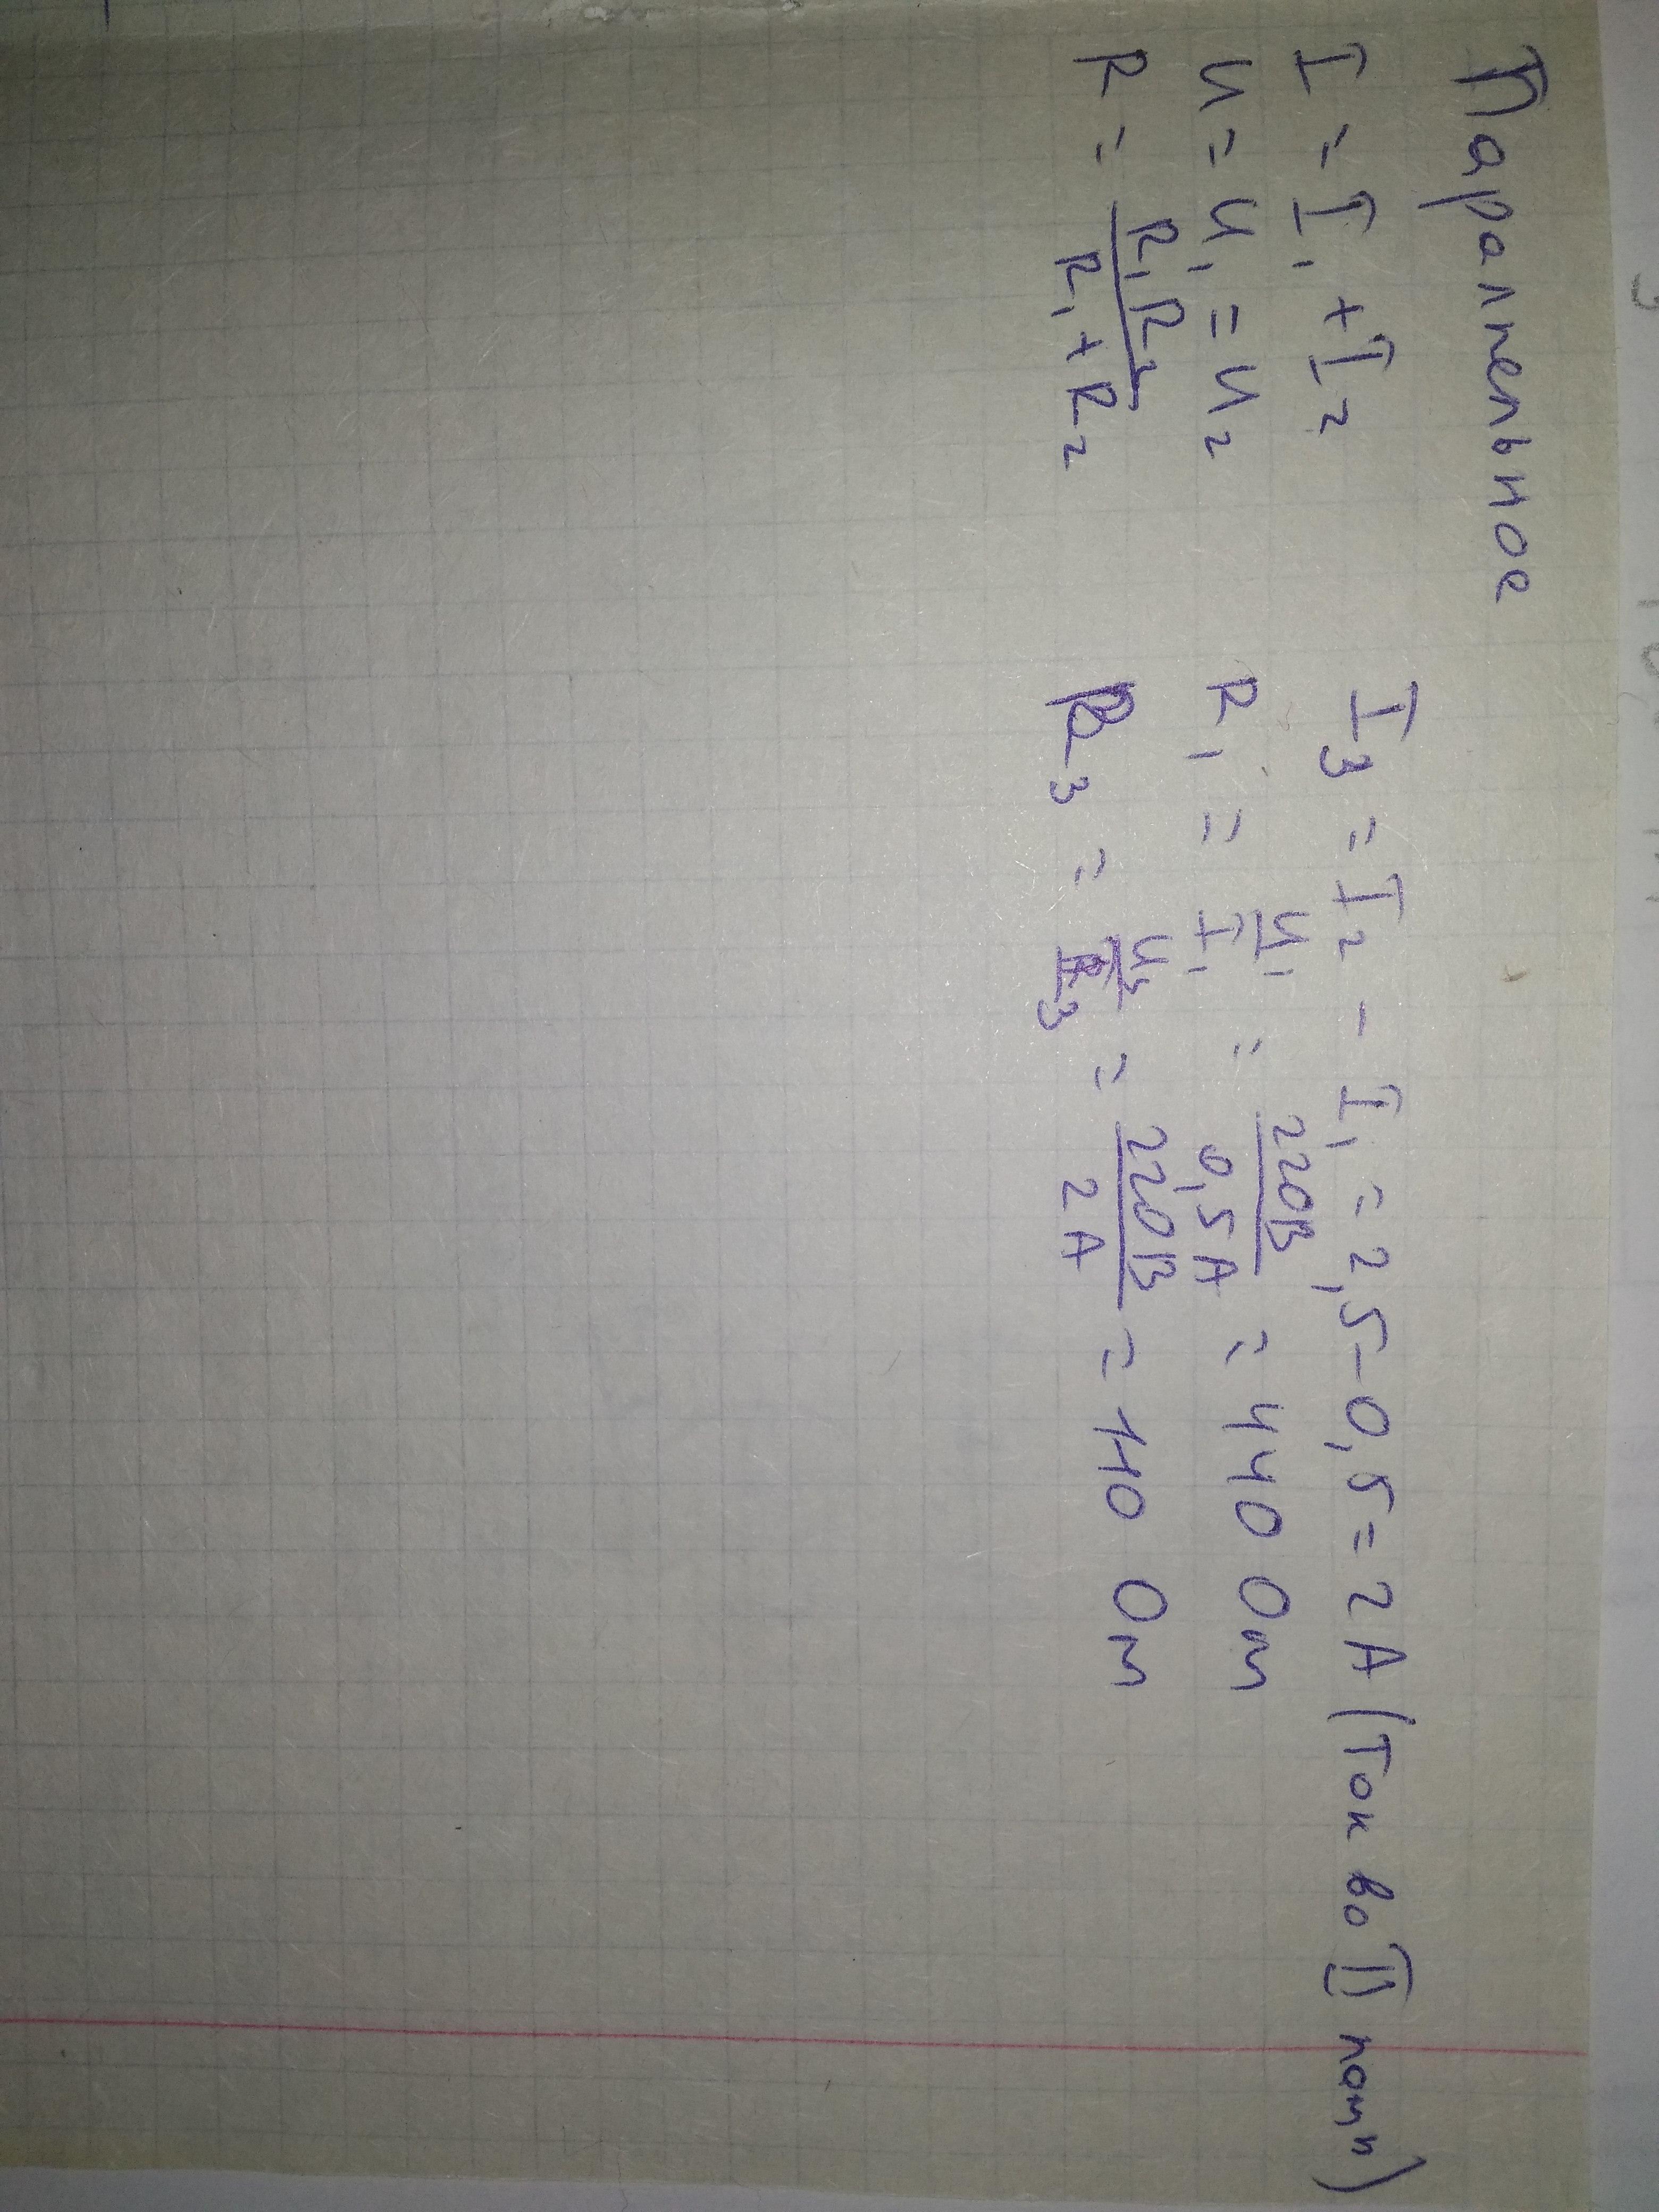 Паралпельное
I = I₁ + I₂
U = U₁ = U₂
R = R₁R₂ / R₁ + R₂
I₃ = I₂ - I₁ = 2,5 - 0,5 = 2 A (Ток во II ламп)
R₁ = U₁ / I₁ = 220В / 0,5 A = 440 Ом
R₃ = U₃ / I₃ = 220В / 2 A = 110 Ом